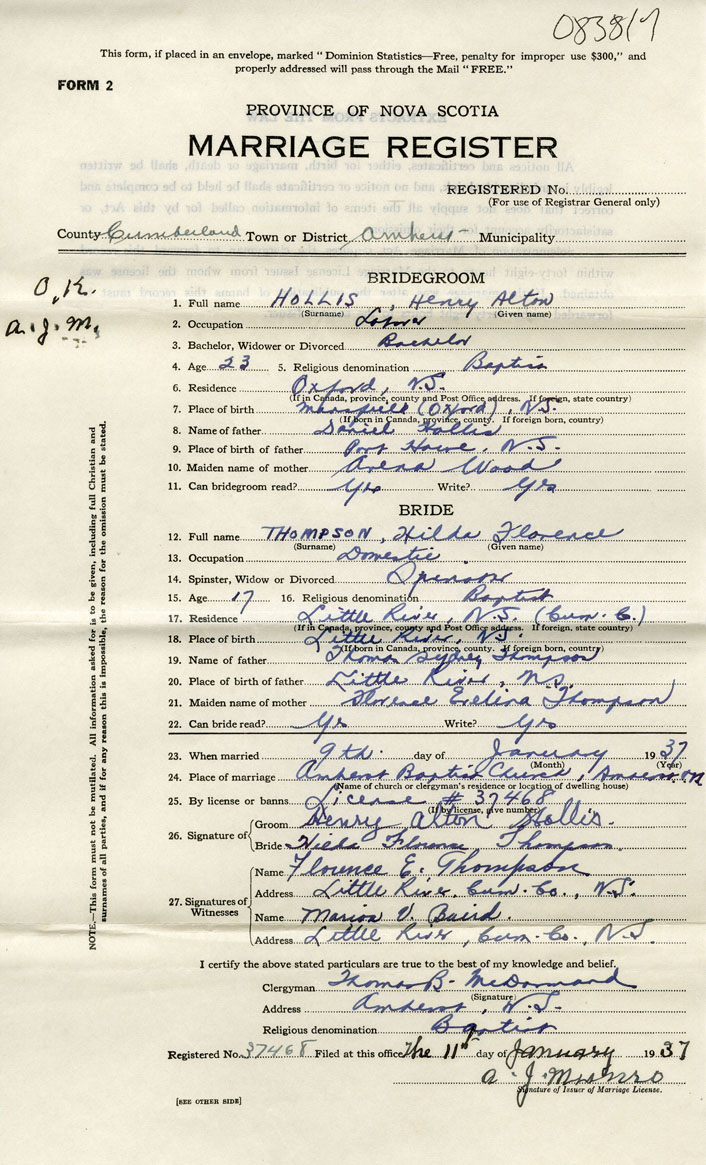 083817
This form, if placed in an envelope, marked "Dominion Statistics—Free, penalty for improper use $300," and
properly addressed will pass through the Mail "FREE."
FORM 2
PROVINCE OF NOVA SCOTIA
MARRIAGE REGISTER
REGISTERED No.
(For use of Registrar General only)
County Cumberland Town or District Amherst Municipality
O.K.
A.J.M.
BRIDEGROOM
1. Full name HOLLIS, Henry Alton
(Surname) (Given name)
2. Occupation Labour
3. Bachelor, Widower or Divorced Bachelor
4. Age 23 5. Religious denomination Baptist
6. Residence Oxford, N.S.
(If in Canada, province, county and Post Office address. If foreign, state country)
7. Place of birth Mansfield (Oxford), N.S.
(If born in Canada, province, county. If foreign born, country)
8. Name of father Daniel Hollis
9. Place of birth of father Port Howe, N.S.
10. Maiden name of mother Arena Wood
11. Can bridegroom read? Yes Write? Yes
BRIDE
12. Full name THOMPSON, Hilda Florence
(Surname) (Given name)
13. Occupation Domestic
14. Spinster, Widow or Divorced Spinster
15. Age 17 16. Religious denomination Baptist
17. Residence Little River, N.S. (Cum. C.)
(If in Canada, province, county and Post Office address. If foreign, state country)
18. Place of birth Little River, N.S.
(If born in Canada, province, county. If foreign born, country)
19. Name of father Thomas Sydney Thompson
20. Place of birth of father Little River, N.S.
21. Maiden name of mother Florence Evelina Thompson
22. Can bride read? Yes Write? Yes
23. When married 9th. day of January 1937
(Month) (Year)
24. Place of marriage Amherst Baptist Church, Amherst
(Name of church or clergyman's residence or location of dwelling house)
25. By license or banns License # 37468
(If by license, give number)
26. Signature of
Groom Henry Alton Hollis.
Bride Hilda Florence Thompson.
27. Signatures of Witnesses
Name Florence E. Thompson
Address Little River, Cum. Co., N.S.
Name Marion V. Baird.
Address Little River, Cum. Co., N.S.
NOTE.—This form must not be mutilated. All information asked for is to be given, including full Christian and
surnames of all parties, and if for any reason this is impossible, the reason for the omission must be stated.
I certify the above stated particulars are true to the best of my knowledge and belief.
Clergyman Thomas B. McDormand
(Signature)
Address Amherst, N.S.
Religious denomination Baptist
Registered No. 37468 Filed at this office the 11th day of January 1937
A. J. Munro
Signature of Issuer of Marriage License.
[SEE OTHER SIDE]